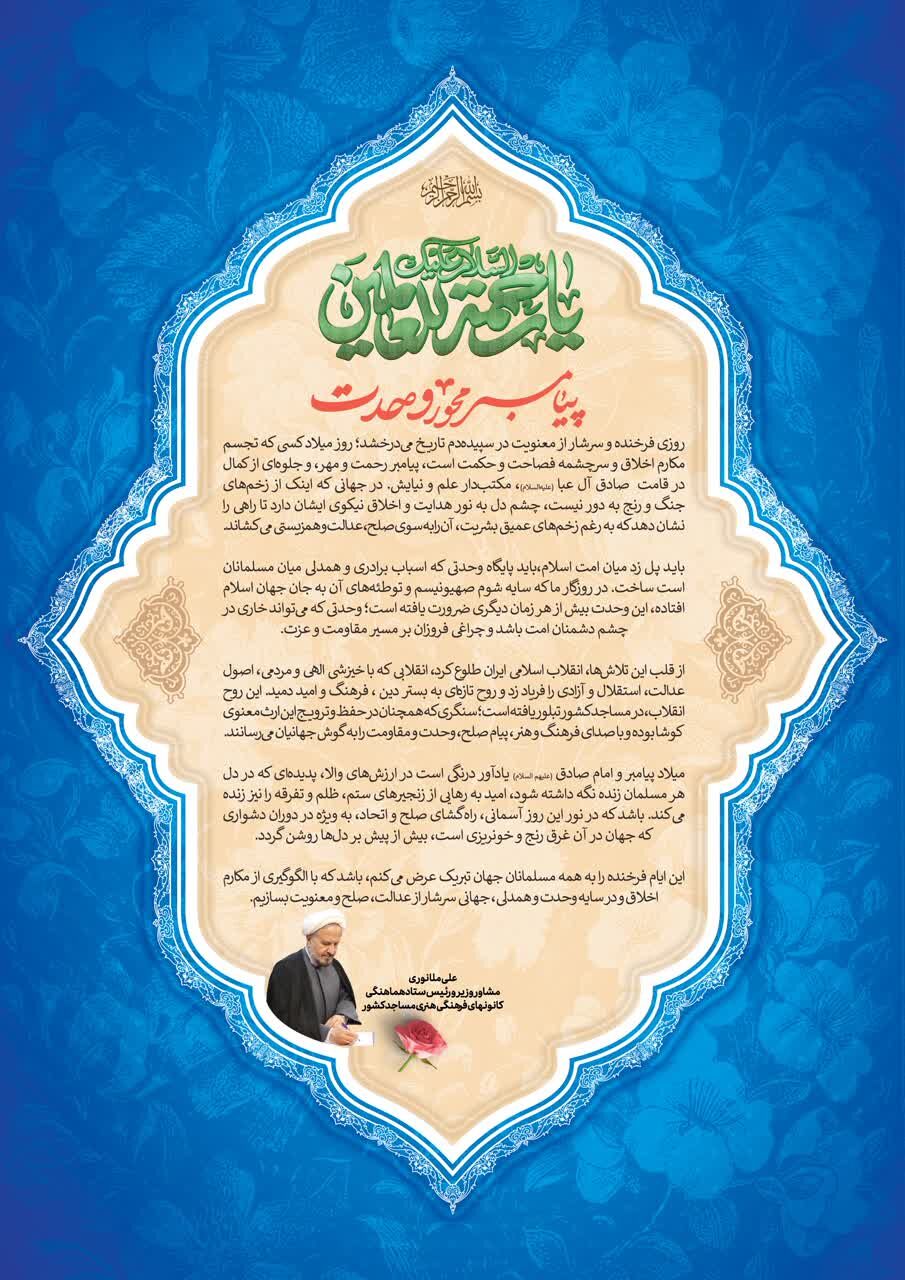 بسم الله الرحمن الرحیم
السلام علیک
یا رحمة للعالمین
پیامبر محور وحدت
روزی فرخنده و سرشار از معنویت در سپیده‌دم تاریخ می‌درخشد؛ روز میلاد کسی که تجسم
مکارم اخلاق و سرچشمه فصاحت و حکمت است، پیامبر رحمت و مهر، و جلوه‌ای از کمال
در قامت صادق آل عبا (علیه‌السلام)، مکتب‌دار علم و نیایش. در جهانی که اینک از زخم‌های
جنگ و رنج به دور نیست، چشم دل به نور هدایت و اخلاق نیکوی ایشان دارد تا راهی را
نشان دهد که به رغم زخم‌های عمیق بشریت، آن را به سوی صلح، عدالت و همزیستی می‌کشاند.
باید پل زد میان امت اسلام،باید پایگاه وحدتی که اسباب برادری و همدلی میان مسلمانان
است ساخت. در روزگار ما که سایه شوم صهیونیسم و توطئه‌های آن به جان جهان اسلام
افتاده، این وحدت بیش از هر زمان دیگری ضرورت یافته است؛ وحدتی که می‌تواند خاری در
چشم دشمنان امت باشد و چراغی فروزان بر مسیر مقاومت و عزت.
از قلب این تلاش‌ها، انقلاب اسلامی ایران طلوع کرد، انقلابی که با خیزشی الهی و مردمی، اصول
عدالت، استقلال و آزادی را فریاد زد و روح تازه‌ای به بستر دین ، فرهنگ و امید دمید. این روح
انقلاب، در مساجد کشور تبلور یافته است؛ سنگری که همچنان در حفظ و ترویج این ارث معنوی
کوشا بوده و با صدای فرهنگ و هنر، پیام صلح، وحدت و مقاومت را به گوش جهانیان می‌رسانند.
میلاد پیامبر و امام صادق (علیهم السلام) یادآور درنگی است در ارزش‌های والا، پدیده‌ای که در دل
هر مسلمان زنده نگه داشته شود، امید به رهایی از زنجیرهای ستم، ظلم و تفرقه را نیز زنده
می‌کند. باشد که در نور این روز آسمانی، راه‌گشای صلح و اتحاد، به ویژه در دوران دشواری
که جهان در آن غرق رنج و خونریزی است، بیش از پیش بر دل‌ها روشن گردد.
این ایام فرخنده را به همه مسلمانان جهان تبریک عرض می‌کنم، باشد که با الگوگیری از مکارم
اخلاق و در سایه وحدت و همدلی، جهانی سرشار از عدالت، صلح و معنویت بسازیم.
علی ملانوری
مشاور وزیر و رئیس ستاد هماهنگی
کانونهای فرهنگی هنری مساجد کشور